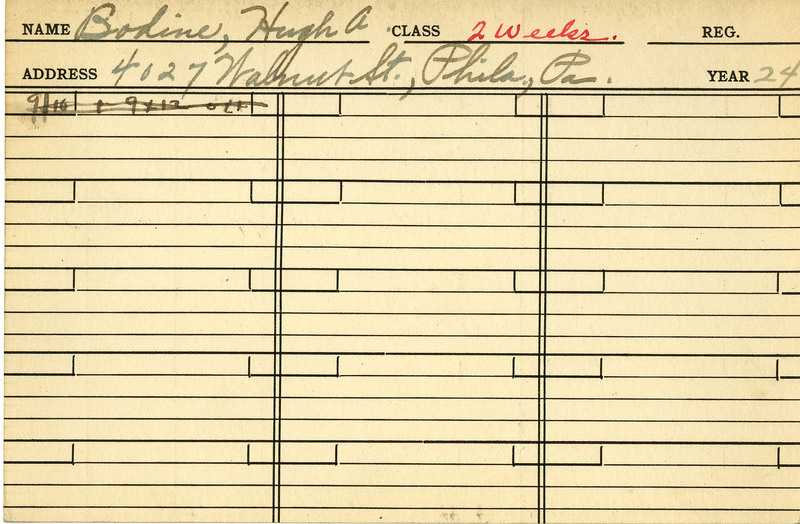 NAME Bodine, Hugh A CLASS 2 Weeks. REG.
ADDRESS 4027 Walnut St., Phila., Pa. YEAR 24
9/10 1 9x12